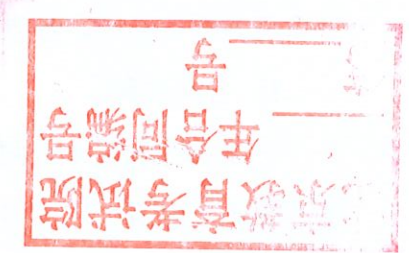 京教育考试院
年合同编号
号